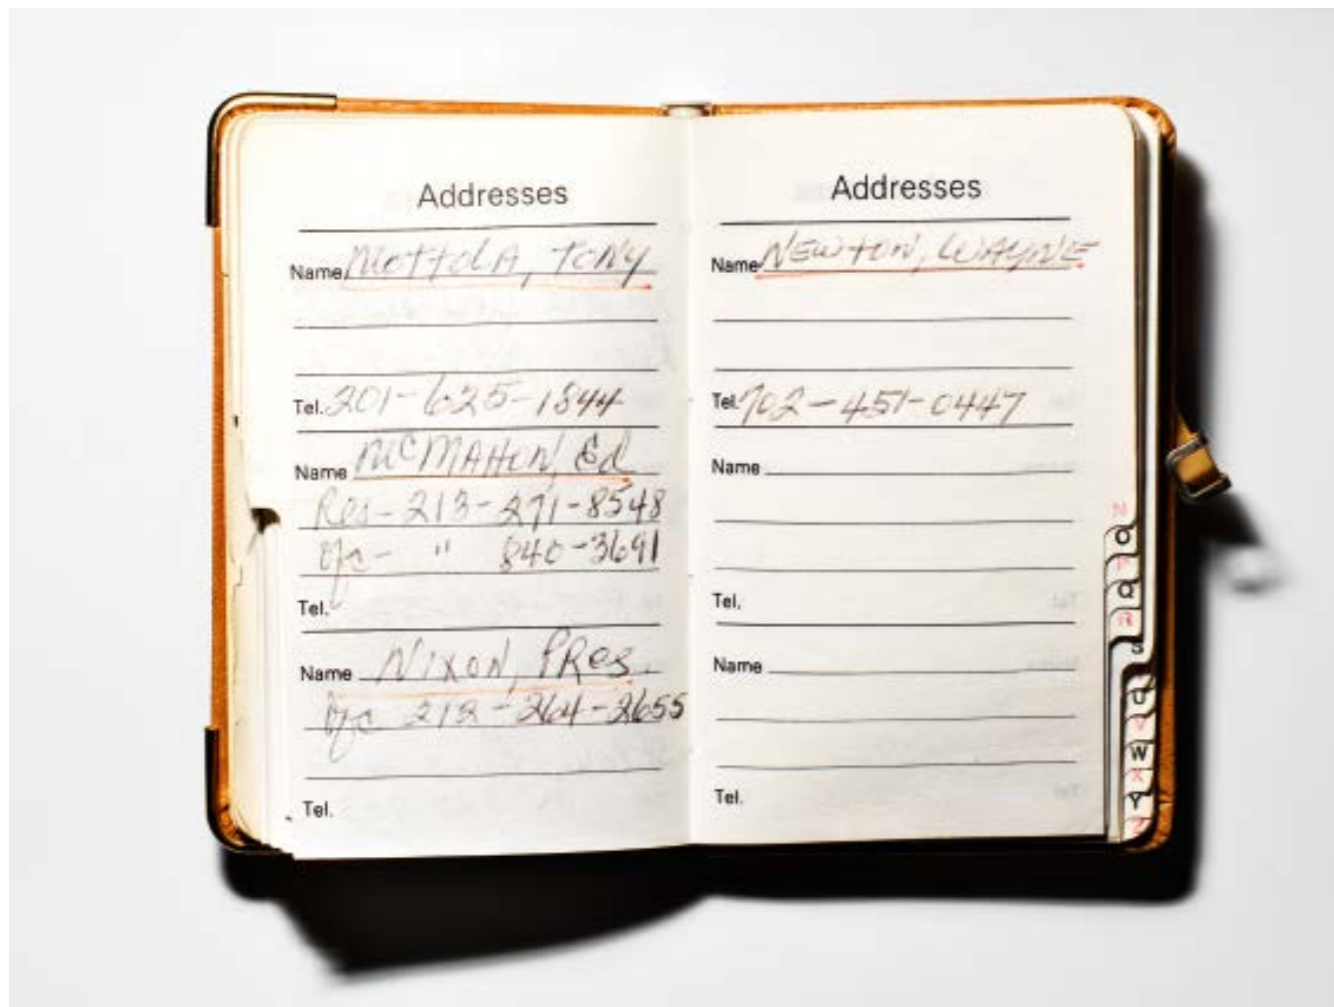 Addresses
Name Mottola, Tony
Tel. 201-625-1844
Name McMAHON, Ed
Res-213-271-8548
Ofc- " 840-3691
Tel.
Name Nixon, PRes.
Ofc 212-264-2655
Tel.
Addresses
Name NEWTON, WAYNE
Tel. 702-451-0447
Name
Tel.
Name
Tel.
N
O
P
Q
R
S
U
V
W
X
Y
Z